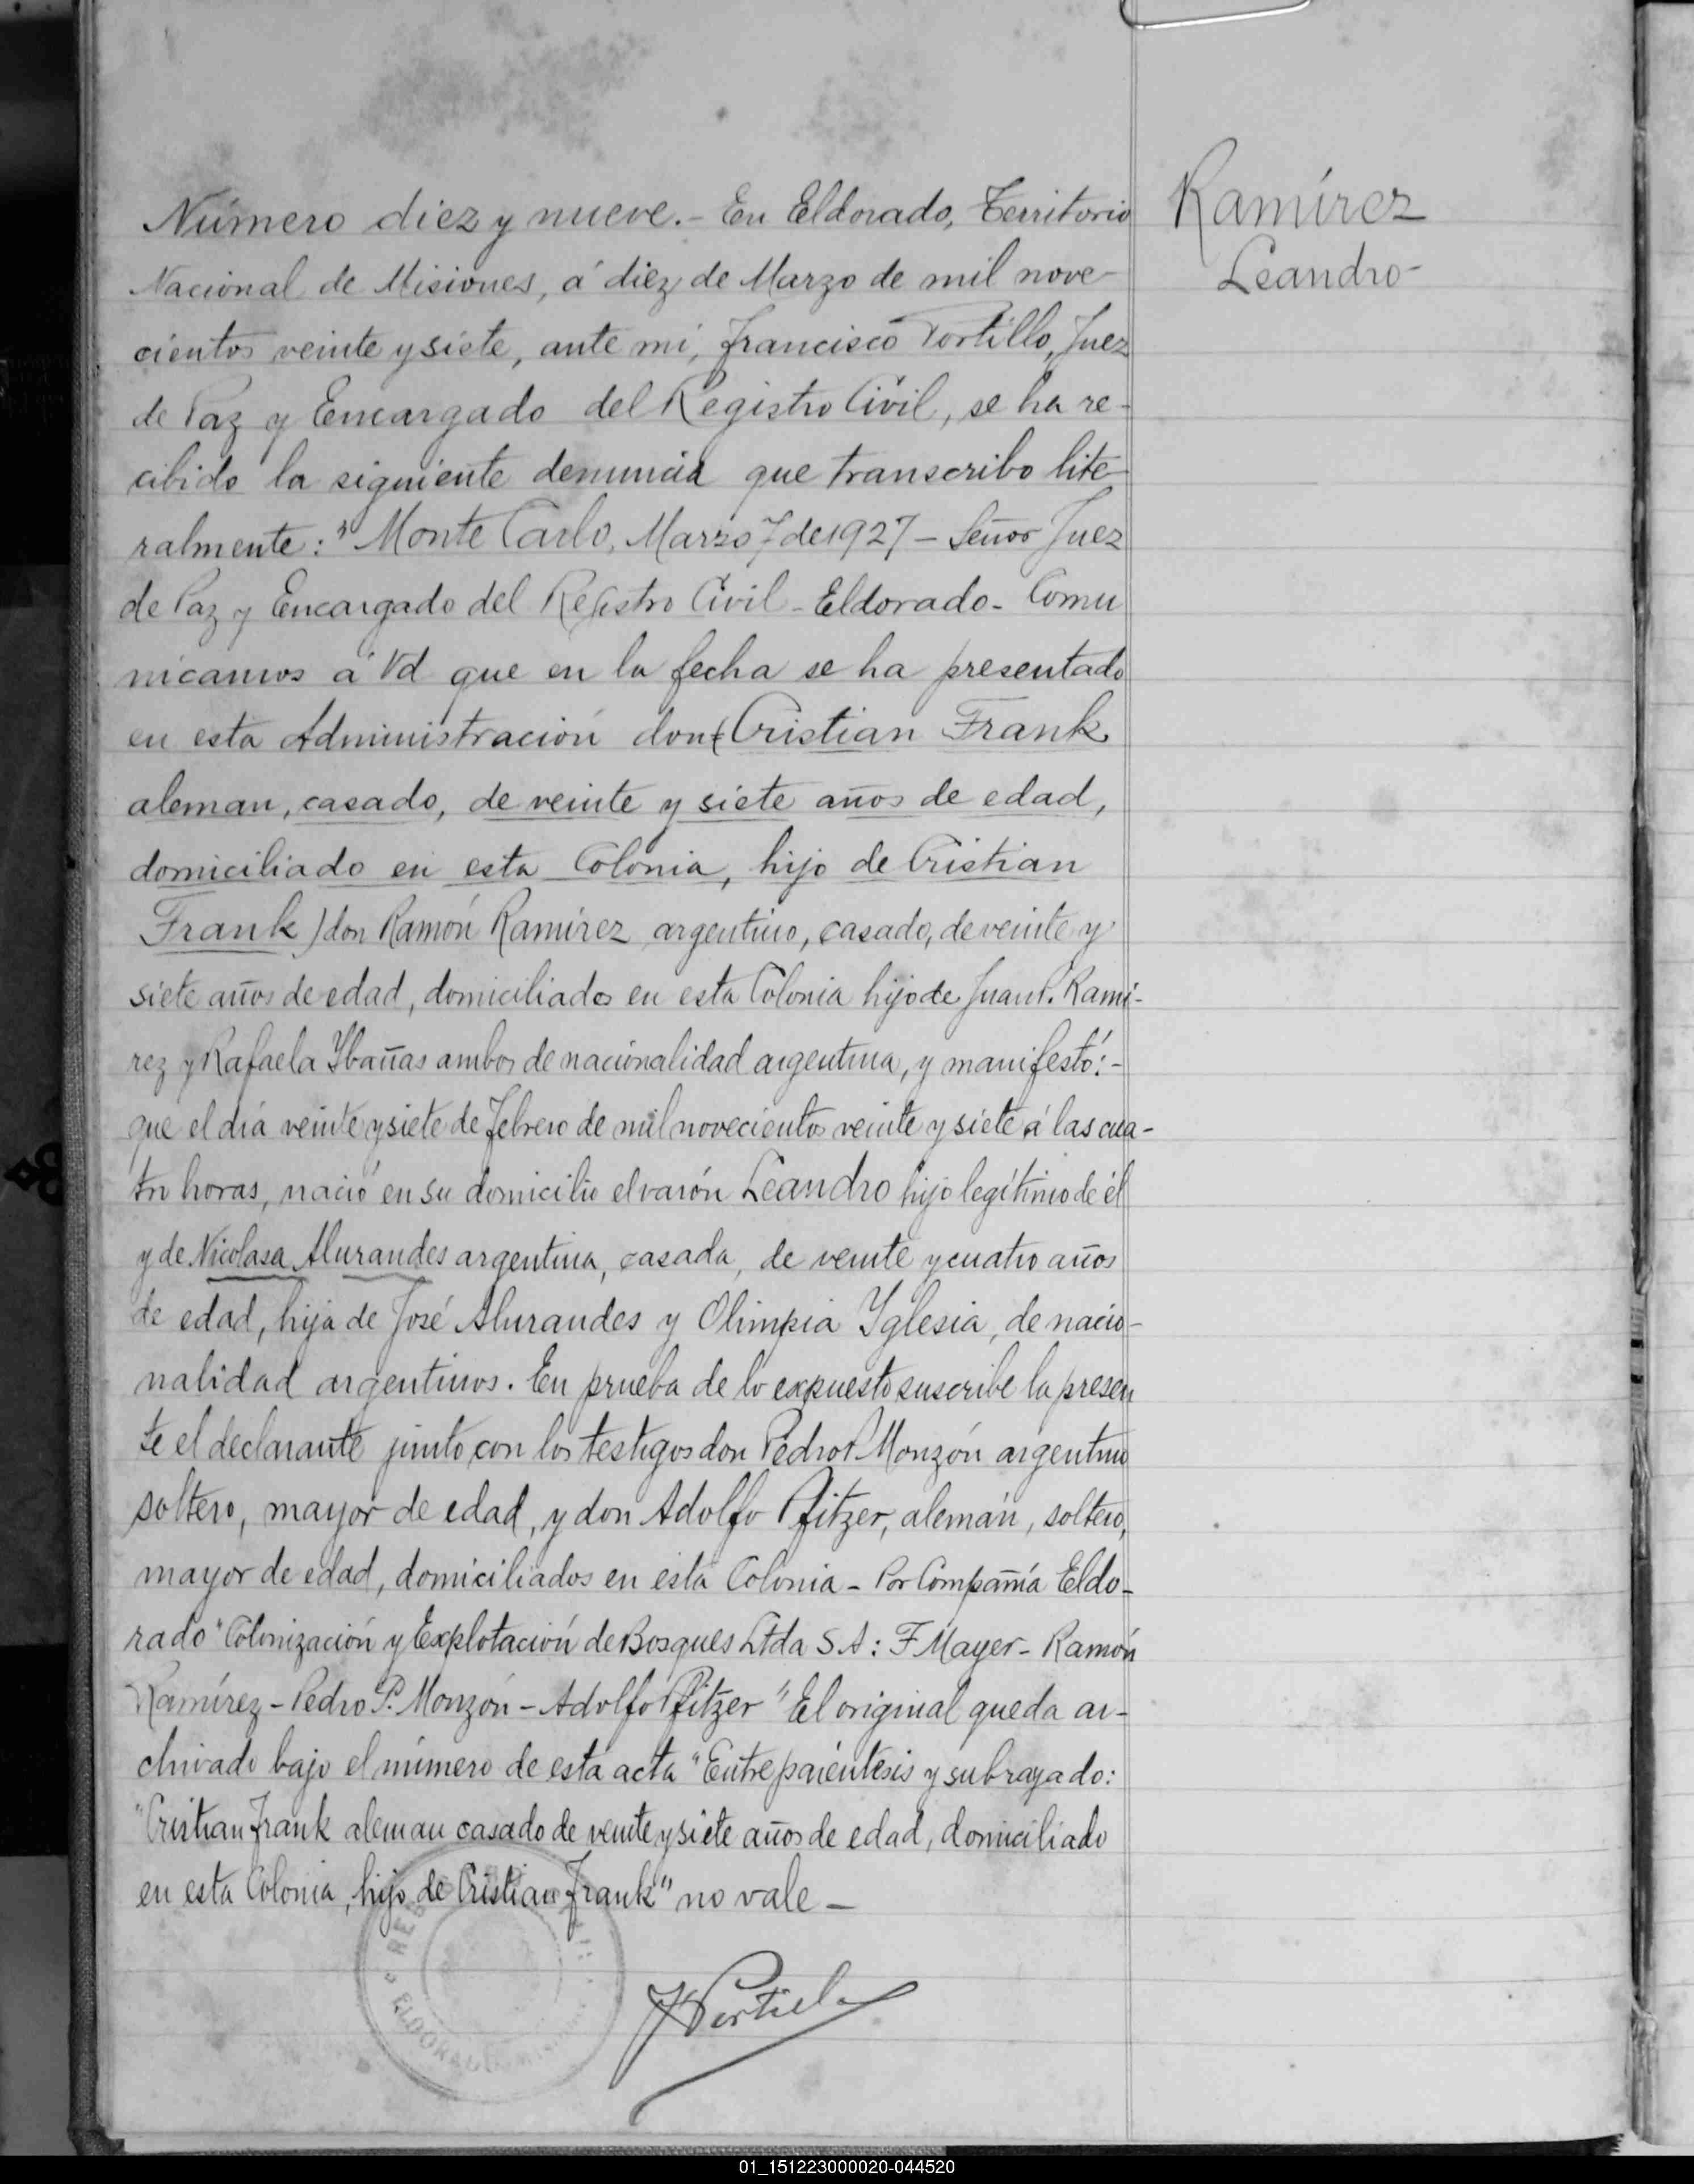 Número diez y nueve.- En Eldorado, Territorio
Nacional de Misiones, á diez de Marzo de mil nove-
cientos veinte y siete, ante mi, Francisco Portillo, Juez
de Paz y Encargado del Registro Civil, se ha re-
cibido la siguiente denuncia que transcribo lite-
ralmente: "Monte Carlo, Marzo 7 de 1927 - Señor Juez
de Paz y Encargado del Registro Civil - Eldorado - Comu
nicamos á Vd que en la fecha se ha presentado
en esta Administración don (Cristian Frank
aleman, casado, de veinte y siete años de edad,
domiciliado en esta Colonia, hijo de Cristian
Frank) don Ramón Ramírez argentino, casado, de veinte y
siete años de edad, domiciliados en esta Colonia hijo de Juan P. Rami-
rez y Rafaela Ybañas ambos de nacionalidad argentina, y manifestó:-
que el día veinte y siete de Febrero de mil novecientos veinte y siete á las cua-
tro horas, nació en su domicilio el varón Leandro hijo legítimo de él
y de Nicolasa Alurandes argentina, casada, de veinte y cuatro años
de edad, hija de José Alurandes y Olimpia Yglesia, de nacio-
nalidad argentinos. En prueba de lo expuesto suscribe la presen
te el declarante junto con los testigos don Pedro P. Monzón argentino
soltero, mayor de edad, y don Adolfo Pfitzer, alemán, soltero,
mayor de edad, domiciliados en esta Colonia - Por Compañía Eldo-
rado "Colonización y Explotación de Bosques Ltda S.A: F Mayer - Ramón
Ramírez - Pedro P. Monzón - Adolfo Pfitzer" El original queda ar-
chivado bajo el número de esta acta "Entre paréntesis y subrayado:
"Cristian Frank aleman casado de veinte y siete años de edad, domiciliado
en esta Colonia, hijo de Cristian Frank" no vale -
F Portillo
ELDORADO
Ramírez
Leandro-
01_151223000020-044520